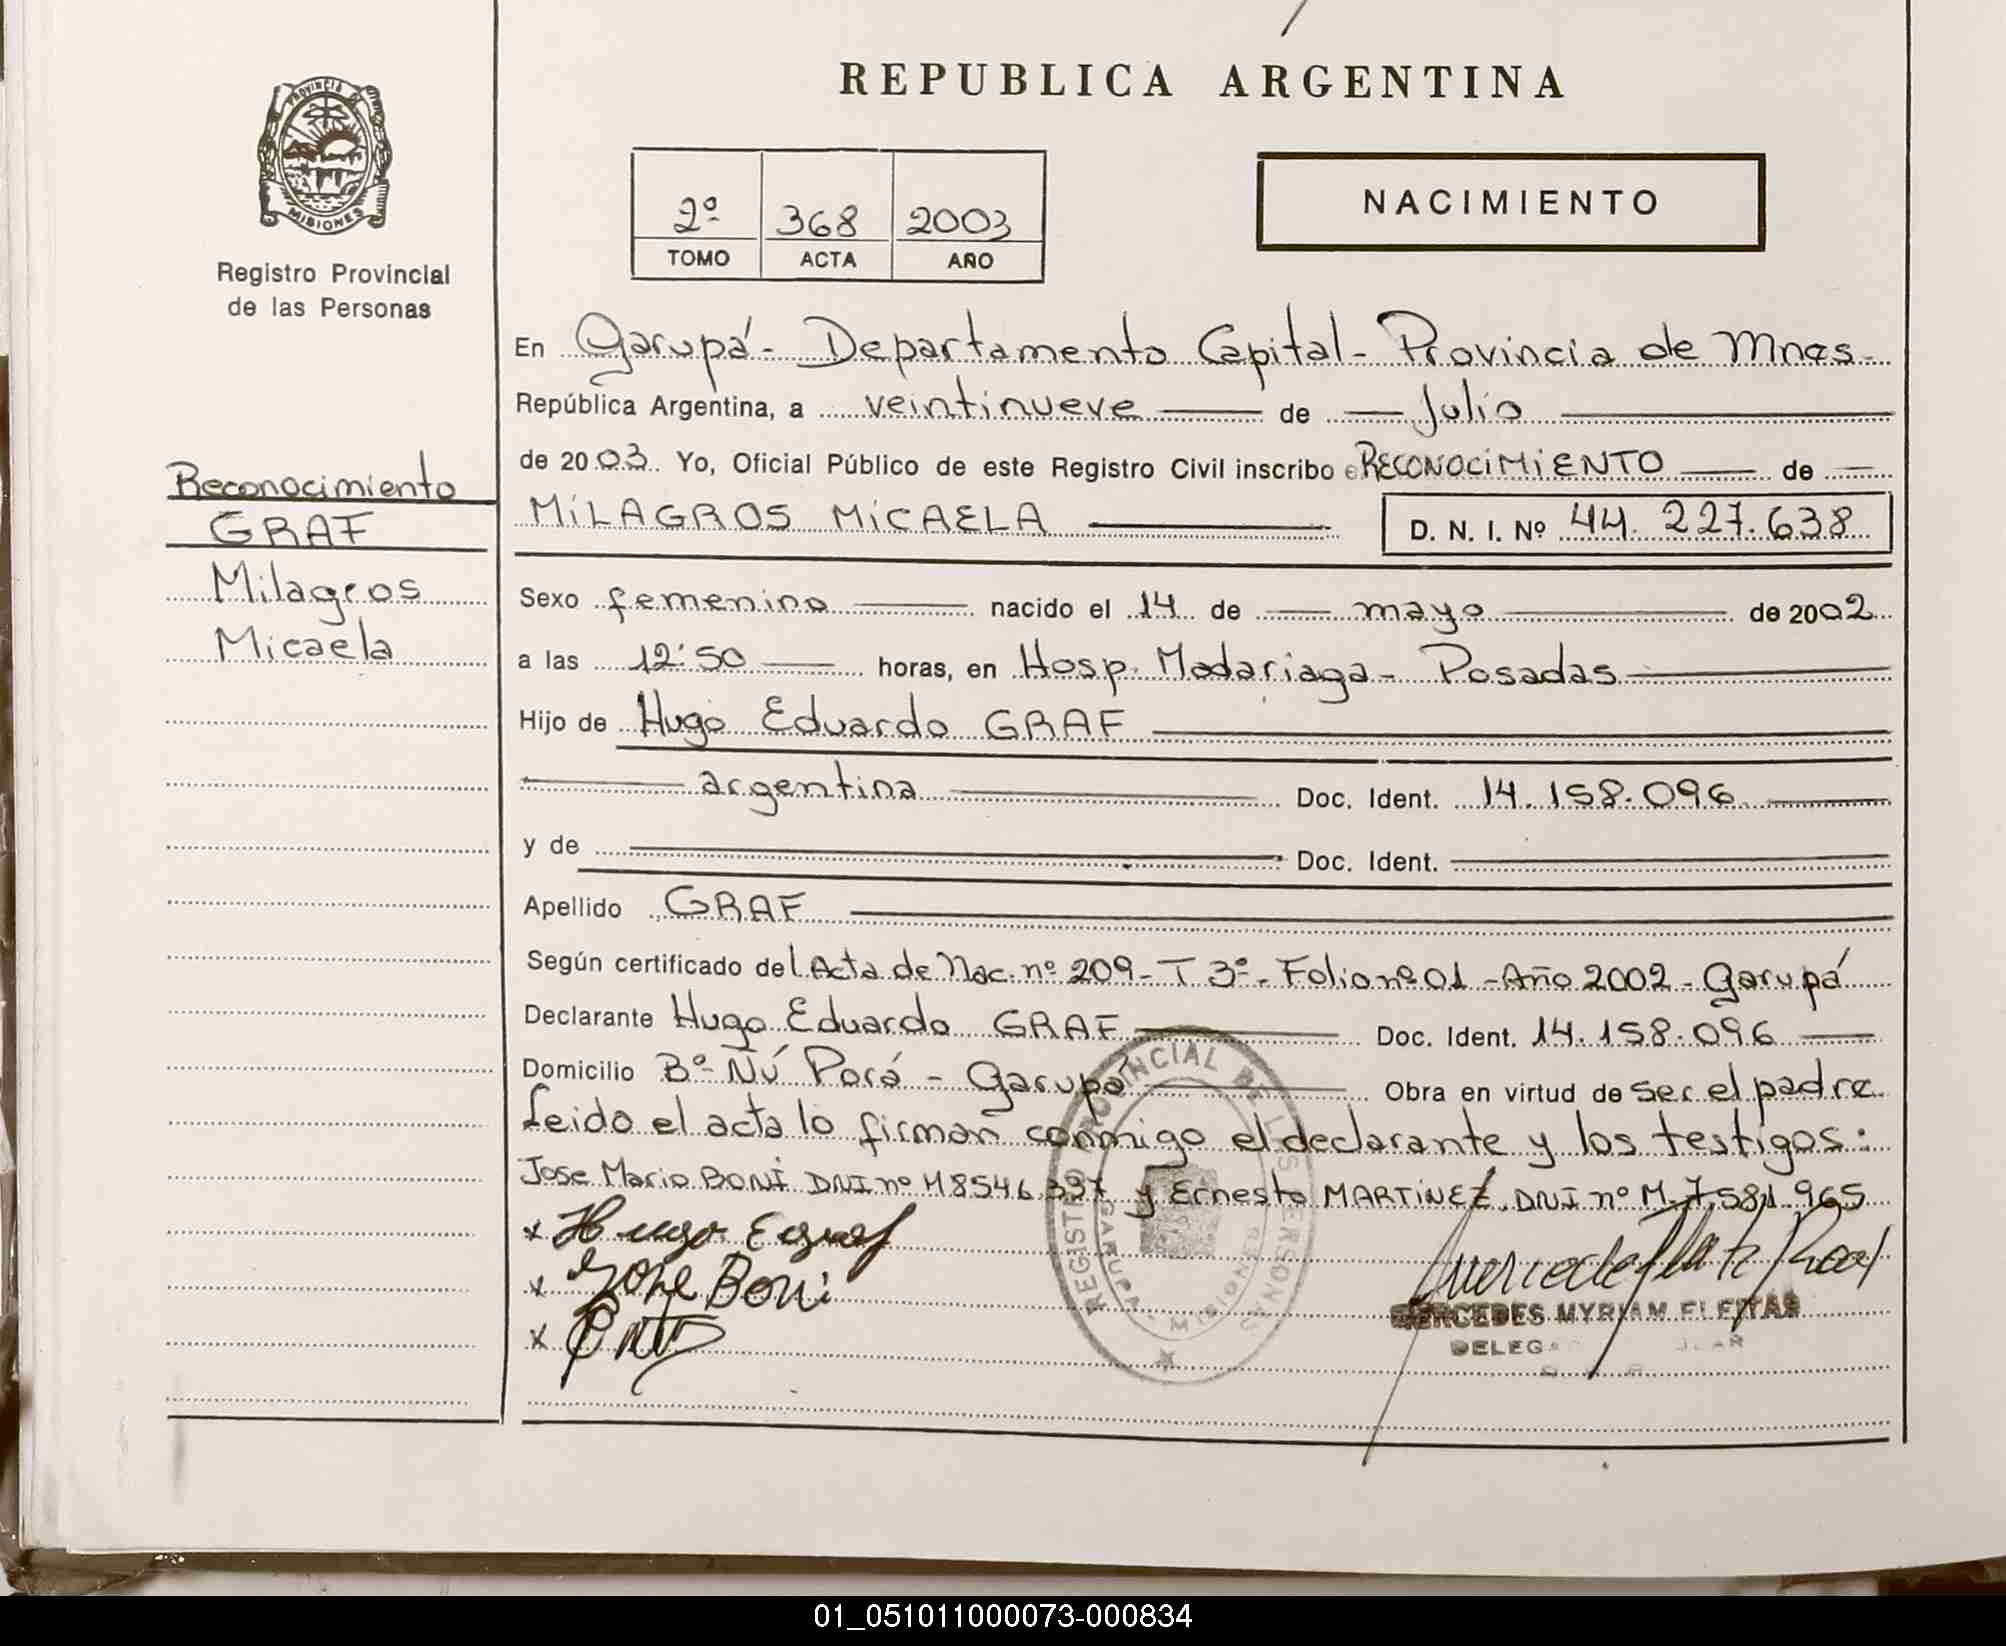 REPUBLICA ARGENTINA
PROVINCIA DE
MISIONES
Registro Provincial
de las Personas
2º 368 2003
TOMO ACTA AÑO
NACIMIENTO
Reconocimiento
GRAF
Milagros
Micaela
En Garupá - Departamento Capital - Provincia de Mnes.
República Argentina, a veintinueve de Julio
de 2003. Yo, Oficial Público de este Registro Civil inscribo e RECONOCIMIENTO de
MILAGROS MICAELA D. N. I. Nº 44.227.638
Sexo femenino nacido el 14 de mayo de 2002
a las 12:50 horas, en Hosp. Madariaga - Posadas
Hijo de Hugo Eduardo GRAF
argentina Doc. Ident. 14.158.096
y de Doc. Ident.
Apellido GRAF
Según certificado del Acta de Nac. nº 209 - T 3º - Folio nº 01 - Año 2002 - Garupá
Declarante Hugo Eduardo GRAF Doc. Ident. 14.158.096
Domicilio Bº Ñú Porá - Garupá Obra en virtud de ser el padre
Leido el acta lo firman conmigo el declarante y los testigos:
Jose Mario BONI DNI nº M8546397 y Ernesto MARTINEZ DNI nº M.7.581.965
x Hugo E graf
x Jose Boni
x
REGISTRO PROVINCIAL DE LAS PERSONAS
GARUPA - MISIONES
MERCEDES MYRIAM FLEITAS
01_051011000073-000834